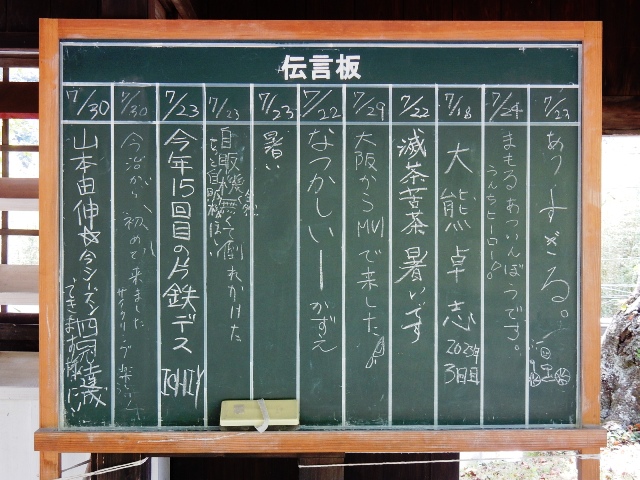 伝言板
7/23
あつーすぎる。
7/24
まもるあついんぼうです。
うんちヒーロー
7/18
大熊卓志
3回目
7/22
滅茶苦茶暑いです
7/29
大阪からMVIで来した
7/22
なつかしいーかずえ
7/23
暑い
7/23
自販機無くて倒れかけた
もっと自販機ほしい
7/23
今年15回目の片鉄デス
7/30
今治から初めて来ました
サイクリング
7/30
山本由伸☆今シーズン
できます様に